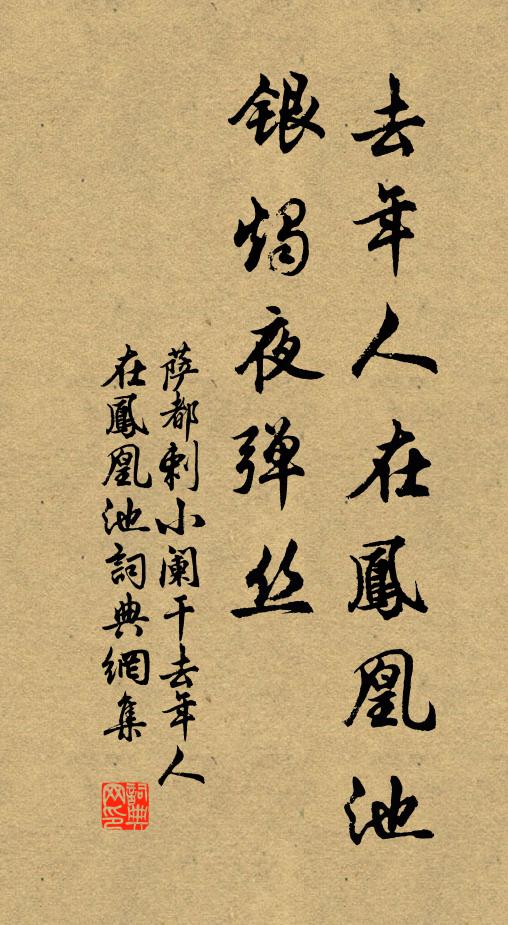 去年人在鳳凰池
銀燭夜弹丝
萨都剌小阑干去年人
在鳳凰池詞典網集
詞典
网印